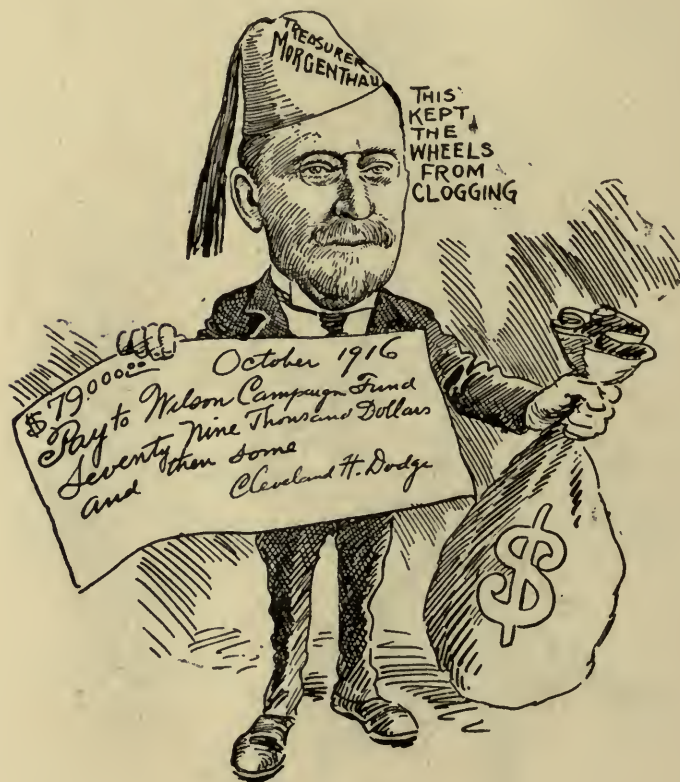 TREASURER
MORGENTHAU
THIS
KEPT
THE
WHEELS
FROM
CLOGGING
$79.000.00 October 1916
Pay to Wilson Campaign Fund
Seventy Nine Thousand Dollars
and then some
Cleveland H. Dodge
$